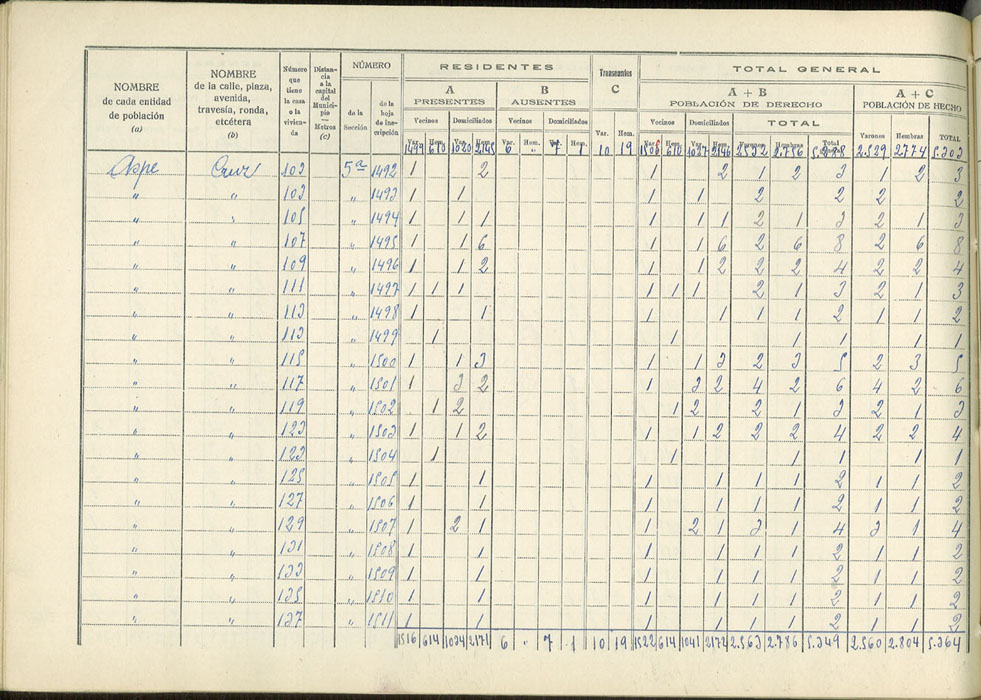 NOMBRE de cada entidad de población (a) | NOMBRE de la calle, plaza, avenida, travesía, ronda, etcétera (b) | Número que tiene la casa o la vivienda | Distancia a la capital del Municipio — Metros (c) | NÚMERO | RESIDENTES | Transeuntes C | TOTAL GENERAL
de la Sección | de la hoja de inscripción | A PRESENTES | B AUSENTES | A + B POBLACIÓN DE DERECHO | A + C POBLACIÓN DE HECHO
Vecinos | Domiciliados | Vecinos | Domiciliados | Vecinos | Domiciliados | TOTAL
Var. | Hem. | Var. | Hem. | Var. | Hem. | Var. | Hem. | Var. | Hem. | Var. | Hem. | Var. | Hem. | Varones | Hembras | Total | Varones | Hembras | TOTAL
1499 610 1020 2145 6 " 7 1 10 19 1505 610 1027 2146 2.532 2.756 5.288 2.529 2.774 5.303
Aspe Cruz 103 5ª 1492 1 2 1 2 1 2 3 1 2 3
" " 103 " 1493 1 1 1 1 2 2 2 2
" " 105 " 1494 1 1 1 1 1 1 2 1 3 2 1 3
" " 107 " 1495 1 1 6 1 1 6 2 6 8 2 6 8
" " 109 " 1496 1 1 2 1 1 2 2 2 4 2 2 4
" " 111 " 1497 1 1 1 1 1 1 2 1 3 2 1 3
" " 113 " 1498 1 1 1 1 1 1 2 1 1 2
" " 113 " 1499 1 1 1 1 1 1
" " 115 " 1500 1 1 3 1 1 3 2 3 5 2 3 5
" " 117 " 1501 1 3 2 1 3 2 4 2 6 4 2 6
" " 119 " 1502 1 2 1 2 2 1 3 2 1 3
" " 123 " 1503 1 1 2 1 1 2 2 2 4 2 2 4
" " 123 " 1504 1 1 1 1 1 1
" " 125 " 1505 1 1 1 1 1 1 2 1 1 2
" " 127 " 1506 1 1 1 1 1 1 2 1 1 2
" " 129 " 1507 1 2 1 1 2 1 3 1 4 3 1 4
" " 131 " 1508 1 1 1 1 1 1 2 1 1 2
" " 133 " 1509 1 1 1 1 1 1 2 1 1 2
" " 135 " 1510 1 1 1 1 1 1 2 1 1 2
" " 137 " 1511 1 1 1 1 1 1 2 1 1 2
1516 614 1034 2171 6 " 7 1 10 19 1522 614 1041 2172 2.563 2.786 5.349 2.560 2.804 5.364